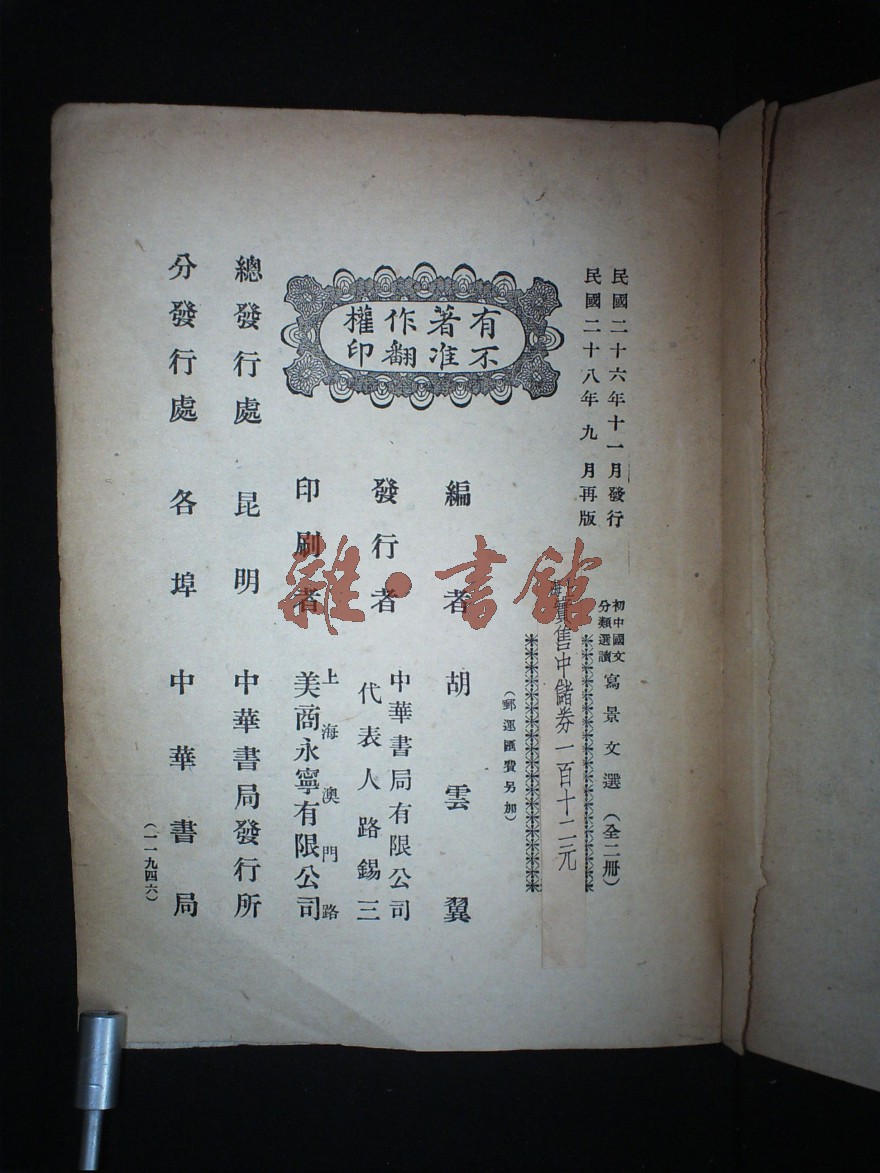 民國二十六年十一月發行
民國二十八年九月再版
初中國文
分類選讀
寫景文選(全二冊)
實售中儲券一百十二元
(郵運匯費另加)
有著作權
不准翻印
編者 胡雲翼
發行者 中華書局有限公司
代表人路錫三
印刷者 上海澳門路
美商永寧有限公司
總發行處 昆明 中華書局發行所
分發行處 各埠 中華書局
(一一九四六)
雜·書館